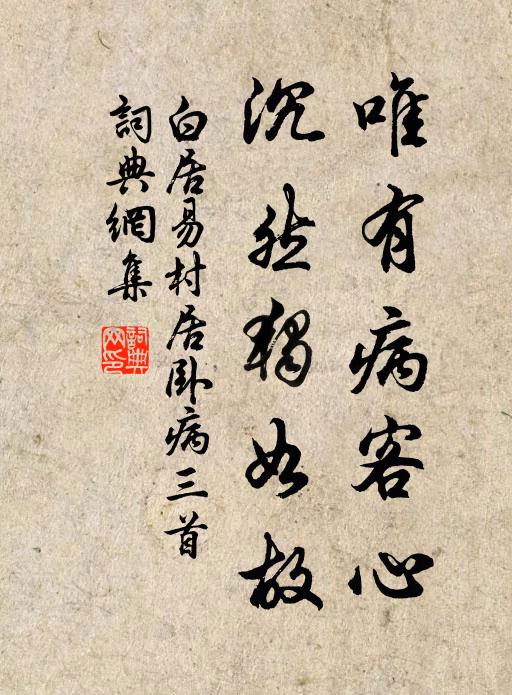 唯有病客心
沉然獨如故
白居易村居臥病三首
詞典網集
詞典
網印